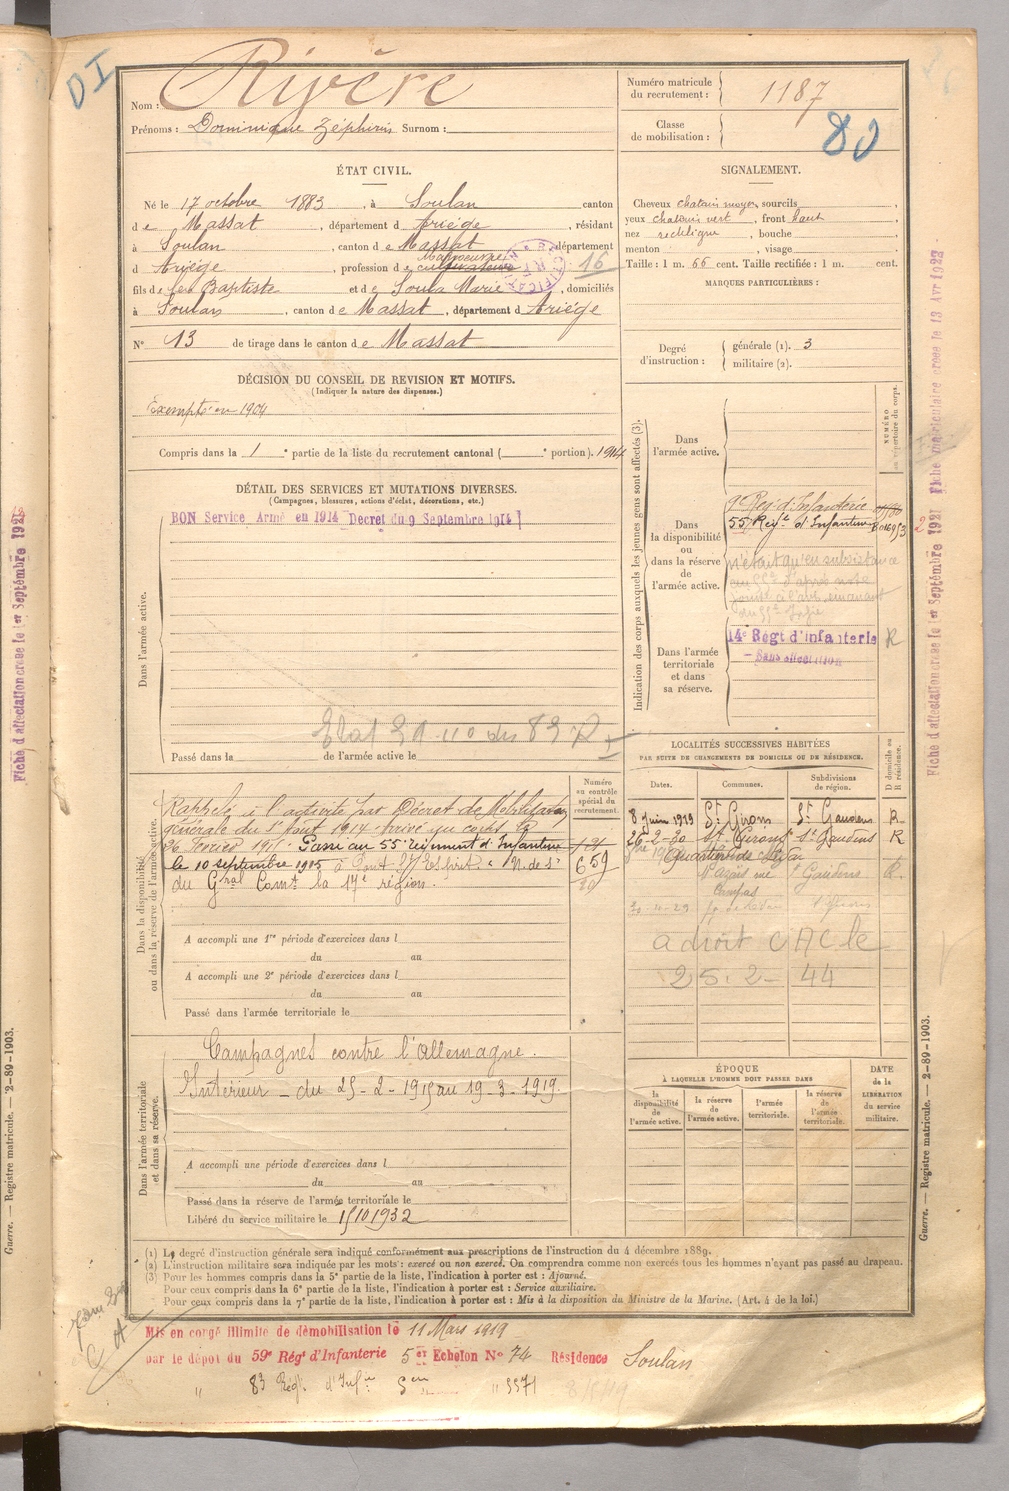 DI
Nom : Rivère
Prénoms : Dominique Zéphirin Surnom :
Numéro matricule
du recrutement : 1187
Classe
de mobilisation :
80
ÉTAT CIVIL.
Né le 17 octobre 1883, à Soulan canton
de Massat, département d Ariége, résidant
à Soulan, canton de Massat département
d Ariége, profession de cultivateur
Manoeuvre
16
fils de feu Baptiste et de Soula Marie, domiciliés
à Soulan, canton de Massat, département d Ariége
N° 13 de tirage dans le canton de Massat
SIGNALEMENT.
Cheveux chatain moyen, sourcils ,
yeux chatain vert, front haut ,
nez rectiligne, bouche ,
menton , visage
Taille : 1 m. 66 cent. Taille rectifiée : 1 m. cent.
MARQUES PARTICULIÈRES :
Degré
d'instruction :
générale (1). 3
militaire (2).
DÉCISION DU CONSEIL DE REVISION ET MOTIFS.
(Indiquer la nature des dispenses.)
Exempté en 1904
Compris dans la 1e partie de la liste du recrutement cantonal ( e portion). 1914
DÉTAIL DES SERVICES ET MUTATIONS DIVERSES.
(Campagnes, blessures, actions d'éclat, décorations, etc.)
BON Service Armé en 1914 Decret du 9 Septembre 1914
Dans l'armée active.
Passé dans la de l'armée active le
Indication des corps auxquels les jeunes gens sont affectés (3).
NUMÉRO
au répertoire du corps.
Dans
l'armée active.
Dans
la disponibilité
ou
dans la réserve
de
l'armée active.
9e Reg. d'Infanterie
55 Reg.t d'Infanterie
n'était qu'en subsistance
au 55e d'après note
Dans l'armée
territoriale
et dans
sa réserve.
14e Régt d'Infanterie R
- Sans affectation
LOCALITÉS SUCCESSIVES HABITÉES
PAR SUITE DE CHANGEMENTS DE DOMICILE OU DE RÉSIDENCE.
Dates. Communes. Subdivisions
de région.
D domicile ou
R résidence.
8 Juin 1919 St Girons St Gaudens R
26-2-20 St Girons St Gaudens R
R.
30-4-29
a droit CAC le
25-2-44
Dans la disponibilité
ou dans la réserve de l'armée active.
Numéro
au contrôle
spécial du
recrutement.
Rappelé à l'activité par Décret de Mobilisation
générale du 1er Aout 1914 Arrivé au corps le
26 Février 1915. Passé au 55e régiment d'Infanterie
le 10 septembre 1915 à Pont St Esprit. N. de S.
du Gral Comt la 17e région.
659
A accompli une 1re période d'exercices dans l
du au
A accompli une 2e période d'exercices dans l
du au
Passé dans l'armée territoriale le
Dans l'armée territoriale
et dans sa réserve.
Campagnes contre l'Allemagne.
Intérieur - du 25-2-1915 au 19-3-1919.
A accompli une période d'exercices dans l
du au
Passé dans la réserve de l'armée territoriale le
Libéré du service militaire le 15 10 1932
ÉPOQUE
À LAQUELLE L'HOMME DOIT PASSER DANS
la
disponibilité
de
l'armée active.
la réserve
de
l'armée active.
l'armée
territoriale.
la réserve
de
l'armée
territoriale.
DATE
de la
LIBÉRATION
du service
militaire.
(1) Le degré d'instruction générale sera indiqué conformément aux prescriptions de l'instruction du 4 décembre 1889.
(2) L'instruction militaire sera indiquée par les mots : exercé ou non exercé. On comprendra comme non exercés tous les hommes n'ayant pas passé au drapeau.
(3) Pour les hommes compris dans la 5e partie de la liste, l'indication à porter est : Ajourné.
Pour ceux compris dans la 6e partie de la liste, l'indication à porter est : Service auxiliaire.
Pour ceux compris dans la 7e partie de la liste, l'indication à porter est : Mis à la disposition du Ministre de la Marine. (Art. 4 de la loi.)
Mis en congé illimité de démobilisation le 11 Mars 1919
par le dépôt du 59e Régt d'Infanterie 5er Echelon No 74 Résidence Soulan
" 83 Régt d'Infie 5en " 5571
Fiche d'affectation créée le 1er Septembre 1921
Guerre. — Registre matricule. — 2-89-1903.
Fiche d'affectation créée le 1er Septembre 1921 Fiche matriculaire créée le 13 Avr 1922
Guerre. — Registre matricule. — 2-89-1903.